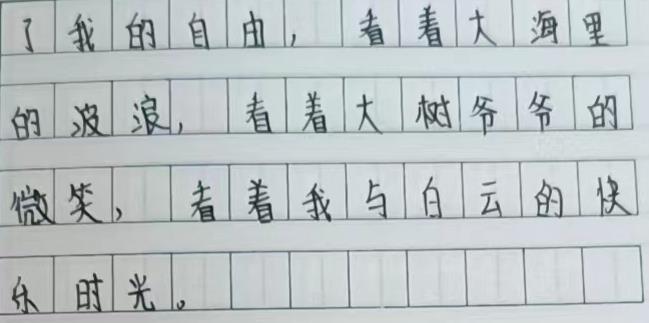 了我的自由，看着大海里
的波浪，看着大树爷爷的
微笑，看着我与白云的快
乐时光。